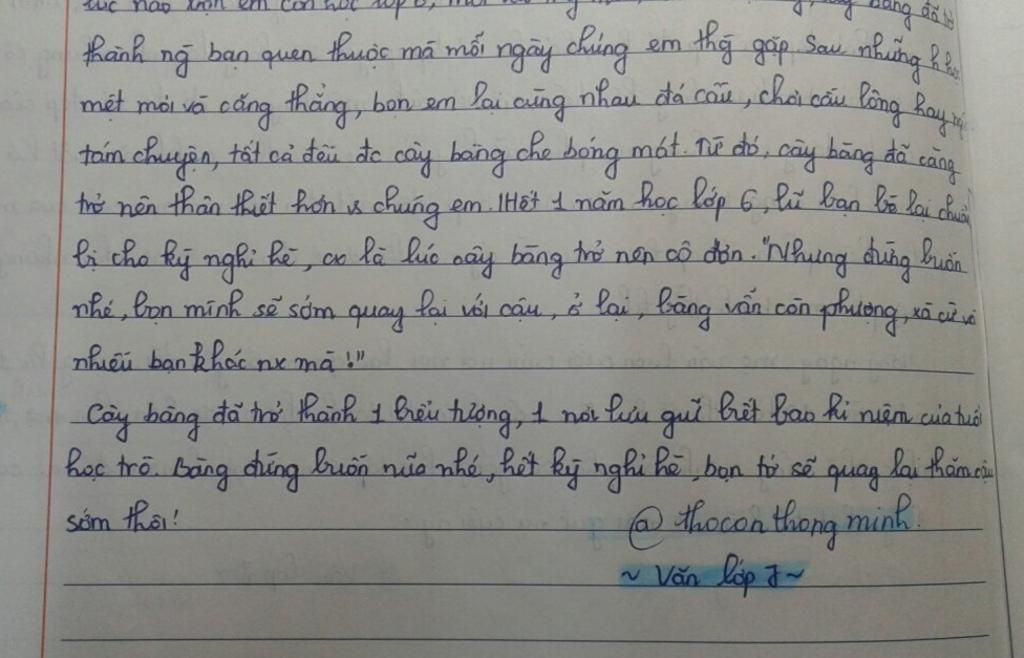 lúc nào bọn em còn học lớp 6, bàng đã trở
thành ng̃ bạn quen thuộc mà mỗi ngày chúng em thg̃ gặp. Sau những
mệt mỏi và căng thẳng, bọn em lại cùng nhau đá cầu, chơi cầu lông hay
tám chuyện, tất cả đều đc cây bàng che bóng mát. Từ đó, cây bàng đã càng
trở nên thân thiết hơn vs chúng em. Hết 1 năm học lớp 6, lũ bạn bè lại chuẩn
bị cho kỳ nghỉ hè, cx là lúc cây bàng trở nên cô đơn. "Nhưng đừng buồn
nhé, bọn mình sẽ sớm quay lại với cậu, ở lại, bàng vẫn còn phượng, xà cừ và
nhiều bạn khác nx mà!"
Cây bàng đã trở thành 1 biểu tượng, 1 nơi lưu giữ biết bao kỉ niệm của tuổi
học trò. Bàng đừng buồn nữa nhé, hết kỳ nghỉ hè, bọn tớ sẽ quay lại thăm cậu
sớm thôi!
@ thocon thong minh.
~ Văn lớp 7 ~